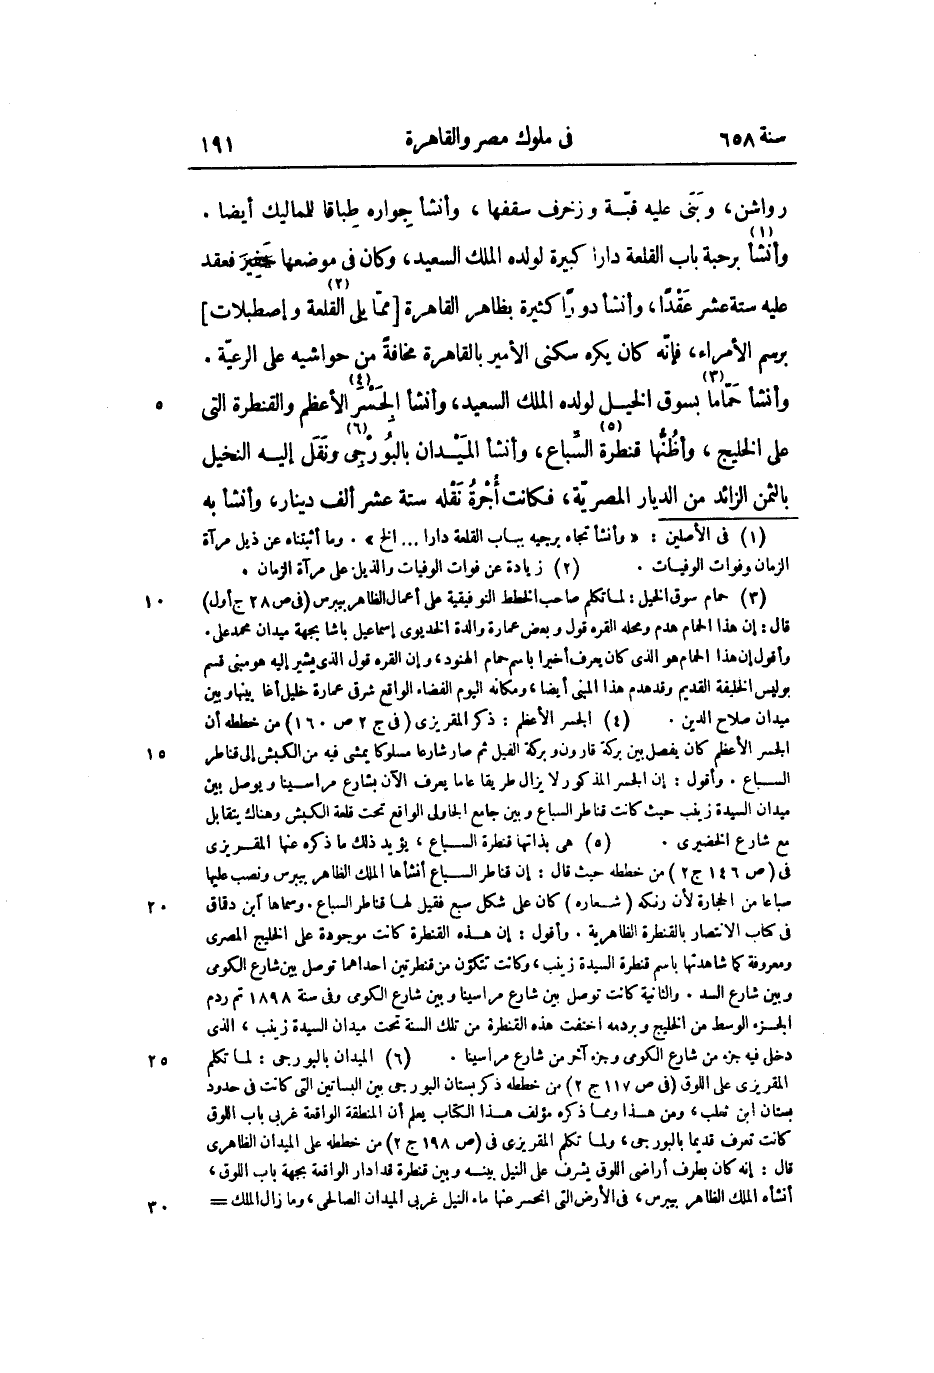 سنة ٦٥٨ فى ملوك مصر والقاهرة ١٩١
رواشن، وبَنَى عليه قبّة وزخرف سقفها ، وأنشأ جِواره طِباقا للماليك أيضا .
وأنشأ (١) برحبة باب القلعة دارا كبيرة لولده الملك السعيد، وكان فى موضعها حَفِير فعقد
عليه ستة عشر عَقْدًا، وأنشأ دورًا كثيرة بظاهر القاهرة [ممّا يلى (٢) القلعة وإصطبلات]
برسم الأمراء، فإنّه كان يكره سكنى الأمير بالقاهرة مخافةً من حواشيه على الرعيّة .
وأنشأ حَمّاما (٣) بسوق الخيل لولده الملك السعيد، وأنشأ الجَسْر (٤) الأعظم والقنطرة التى ٥
على الخليج ، وأظُنُّها قنطرة (٥) السِّباع، وأنشأ المَيْدان بالبُورْجى (٦) ونَقَل إليه النخيل
بالثمن الزائد من الديار المصريّة، فكانت أُجْرةُ نَقْله ستة عشر ألف دينار، وأنشأ به
(١) فى الأصلين : «وأنشأ تجاه برجيه بباب القلعة دارا ... الخ» . وما أثبتناه عن ذيل مرآة
الزمان وفوات الوفيات . (٢) زيادة عن فوات الوفيات والذيل على مرآة الزمان .
(٣) حمام سوق الخيل : لما تكلم صاحب الخطط التوفيقية على أعمال الظاهر بيبرس (فى ص ٢٨ ج أول) ١٠
قال : إن هذا الحمام هدم ومحله القره قول وبعض عمارة والدة الخديوى إسماعيل باشا بجهة ميدان محمد على .
وأقول إن هذا الحمام هو الذى كان يعرف أخيرا باسم حمام الهنود، وإن القره قول الذى يشير إليه هو مبنى قسم
بوليس الخليفة القديم وقد هدم هذا المبنى أيضا، ومكانه اليوم الفضاء الواقع شرقى عمارة خليل أغا بينها وبين
ميدان صلاح الدين . (٤) الجسر الأعظم : ذكر المقريزى (فى ج ٢ ص ١٦٠) من خططه أن
الجسر الأعظم كان يفصل بين بركة قارون وبركة الفيل ثم صار شارعا مسلوكا يمشى فيه من الكبش إلى قناطر ١٥
السباع . وأقول : إن الجسر المذكور لا يزال طريقا عاما يعرف الآن بشارع مراسينا ويوصل بين
ميدان السيدة زينب حيث كانت قناطر السباع وبين جامع الجاولى الواقع تحت قلعة الكبش وهناك يتقابل
مع شارع الخضيرى . (٥) هى بذاتها قنطرة السباع ، يؤيد ذلك ما ذكره عنها المقريزى
فى (ص ١٤٦ ج ٢) من خططه حيث قال : إن قناطر السباع أنشأها الملك الظاهر بيبرس ونصب عليها
سباعا من الحجارة لأن رنكه (شعاره) كان على شكل سبع فقيل لها قناطر السباع . وسماها آبن دقاق ٢٠
فى كتاب الانتصار بالقنطرة الظاهرية . وأقول : إن هذه القنطرة كانت موجودة على الخليج المصرى
ومعروفة كما شاهدتها باسم قنطرة السيدة زينب، وكانت تتكوّن من قنطرتين احداهما توصل بين شارع الكومى
وبين شارع السد . والثانية كانت توصل بين شارع مراسينا وبين شارع الكومى وفى سنة ١٨٩٨ تم ردم
الجزء الوسط من الخليج وبردمه اختفت هذه القنطرة من تلك السنة تحت ميدان السيدة زينب ، الذى
دخل فيه جزء من شارع الكومى وجزء آخر من شارع مراسينا . (٦) الميدان بالبورجى : لما تكلم ٢٥
المقريزى على اللوق (فى ص ١١٧ ج ٢) من خططه ذكر بستان البورجى بين البساتين التى كانت فى حدود
بستان ابن ثعلب، ومن هذا ومما ذكره مؤلف هذا الكتاب يعلم أن المنطقة الواقعة غربى باب اللوق
كانت تعرف قديما بالبورجى، ولما تكلم المقريزى فى (ص ١٩٨ ج ٢) من خططه على الميدان الظاهرى
قال : إنه كان بطرف أراضى اللوق يشرف على النيل بينه وبين قنطرة قدادار الواقعة بجهة باب اللوق ،
أنشأه الملك الظاهر بيبرس، فى الأرض التى انحسر عنها ماء النيل غربى الميدان الصالحى، وما زال الملك = ٣٠